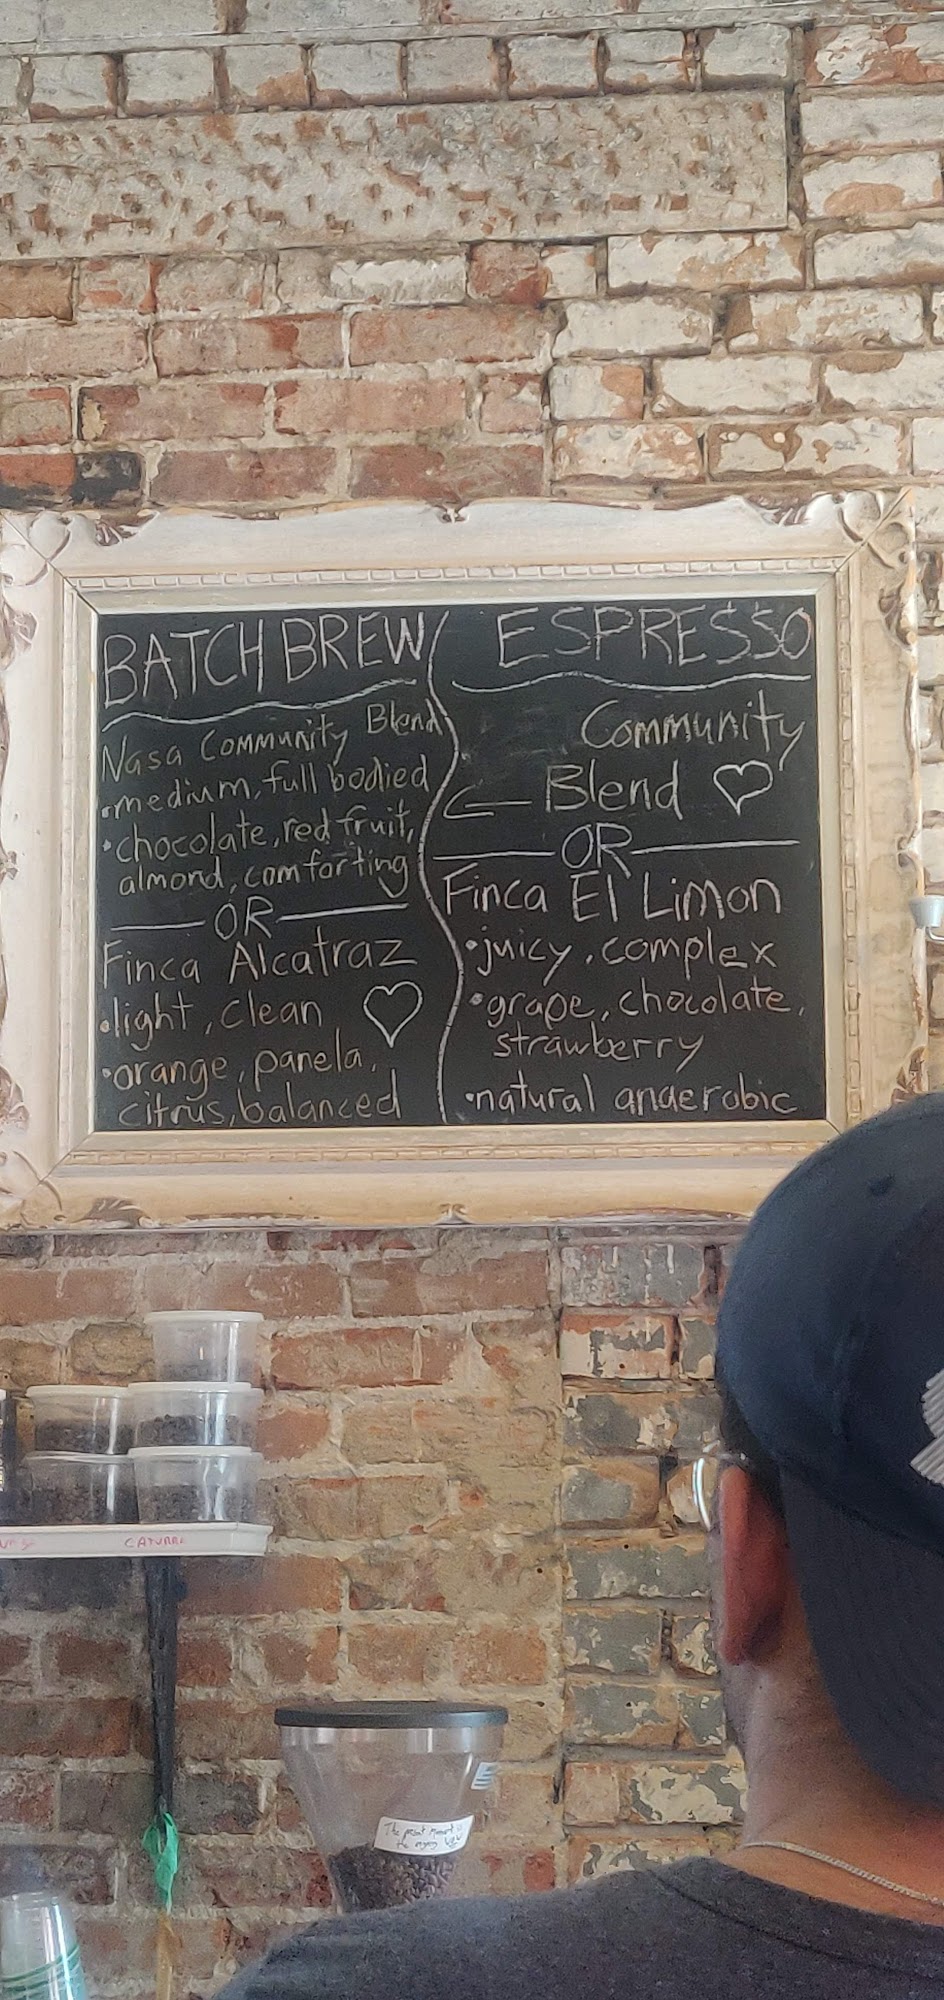 BATCH BREW
Nasa Community Blend
•medium, full bodied
•chocolate, red fruit,
almond, comforting
OR
Finca Alcatraz
•light, clean
•orange, panela,
citrus, balanced
ESPRESSO
Community
Blend
OR
Finca El Limon
•juicy, complex
•grape, chocolate,
strawberry
•natural anaerobic
CATURRA